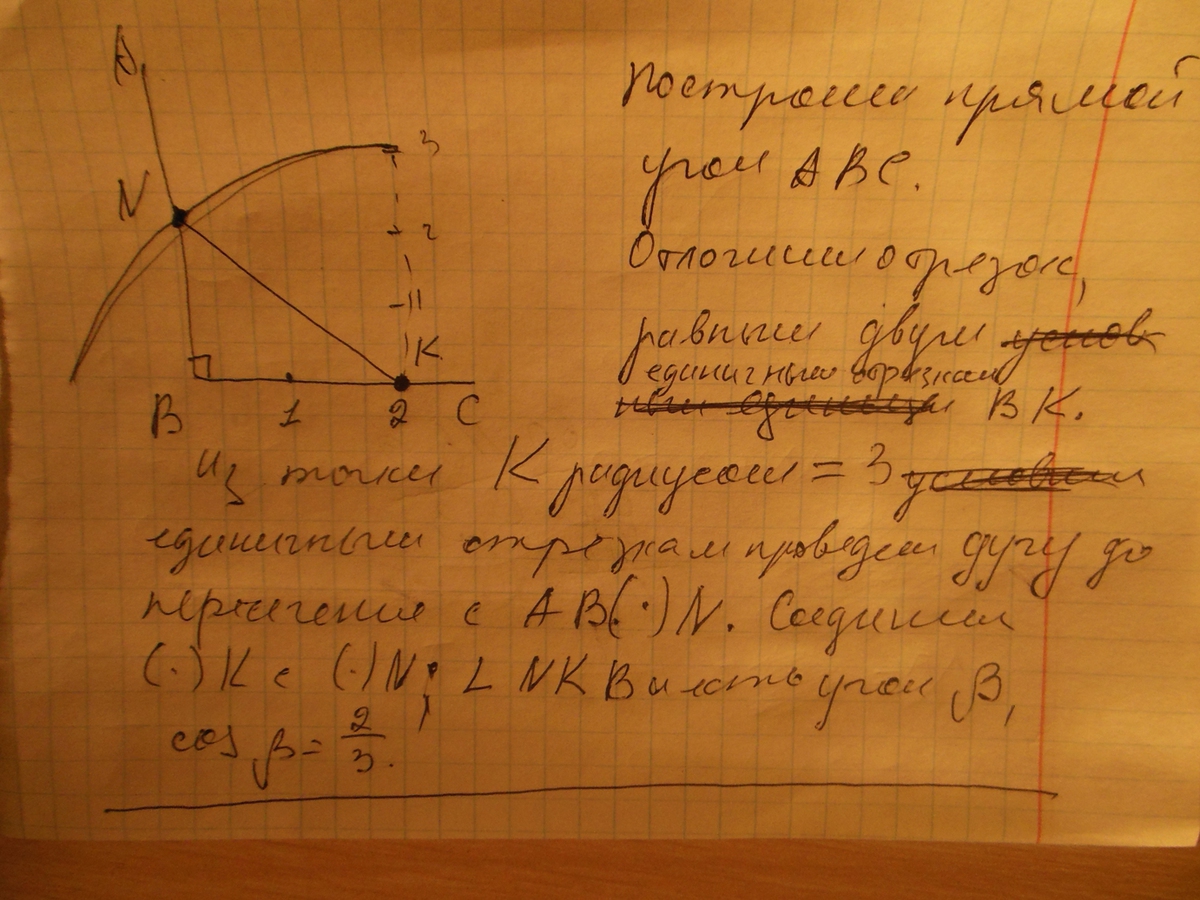 A
3
N
2
1
K
B 1 2 C
Построим прямой
угол ABC.
Отложим отрезок,
равный двум
единичным отрезкам
BK.
Из точки K радиусом = 3
единичным отрезкам проведем дугу до
пересечения с AB (·) N. Соединим
(·) K с (·) N; ∠ NKB и есть угол β,
cos β = 2/3.